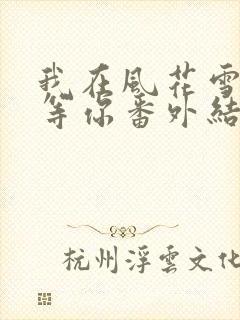 我在風花雪
等你番外結
杭州浮雲文化